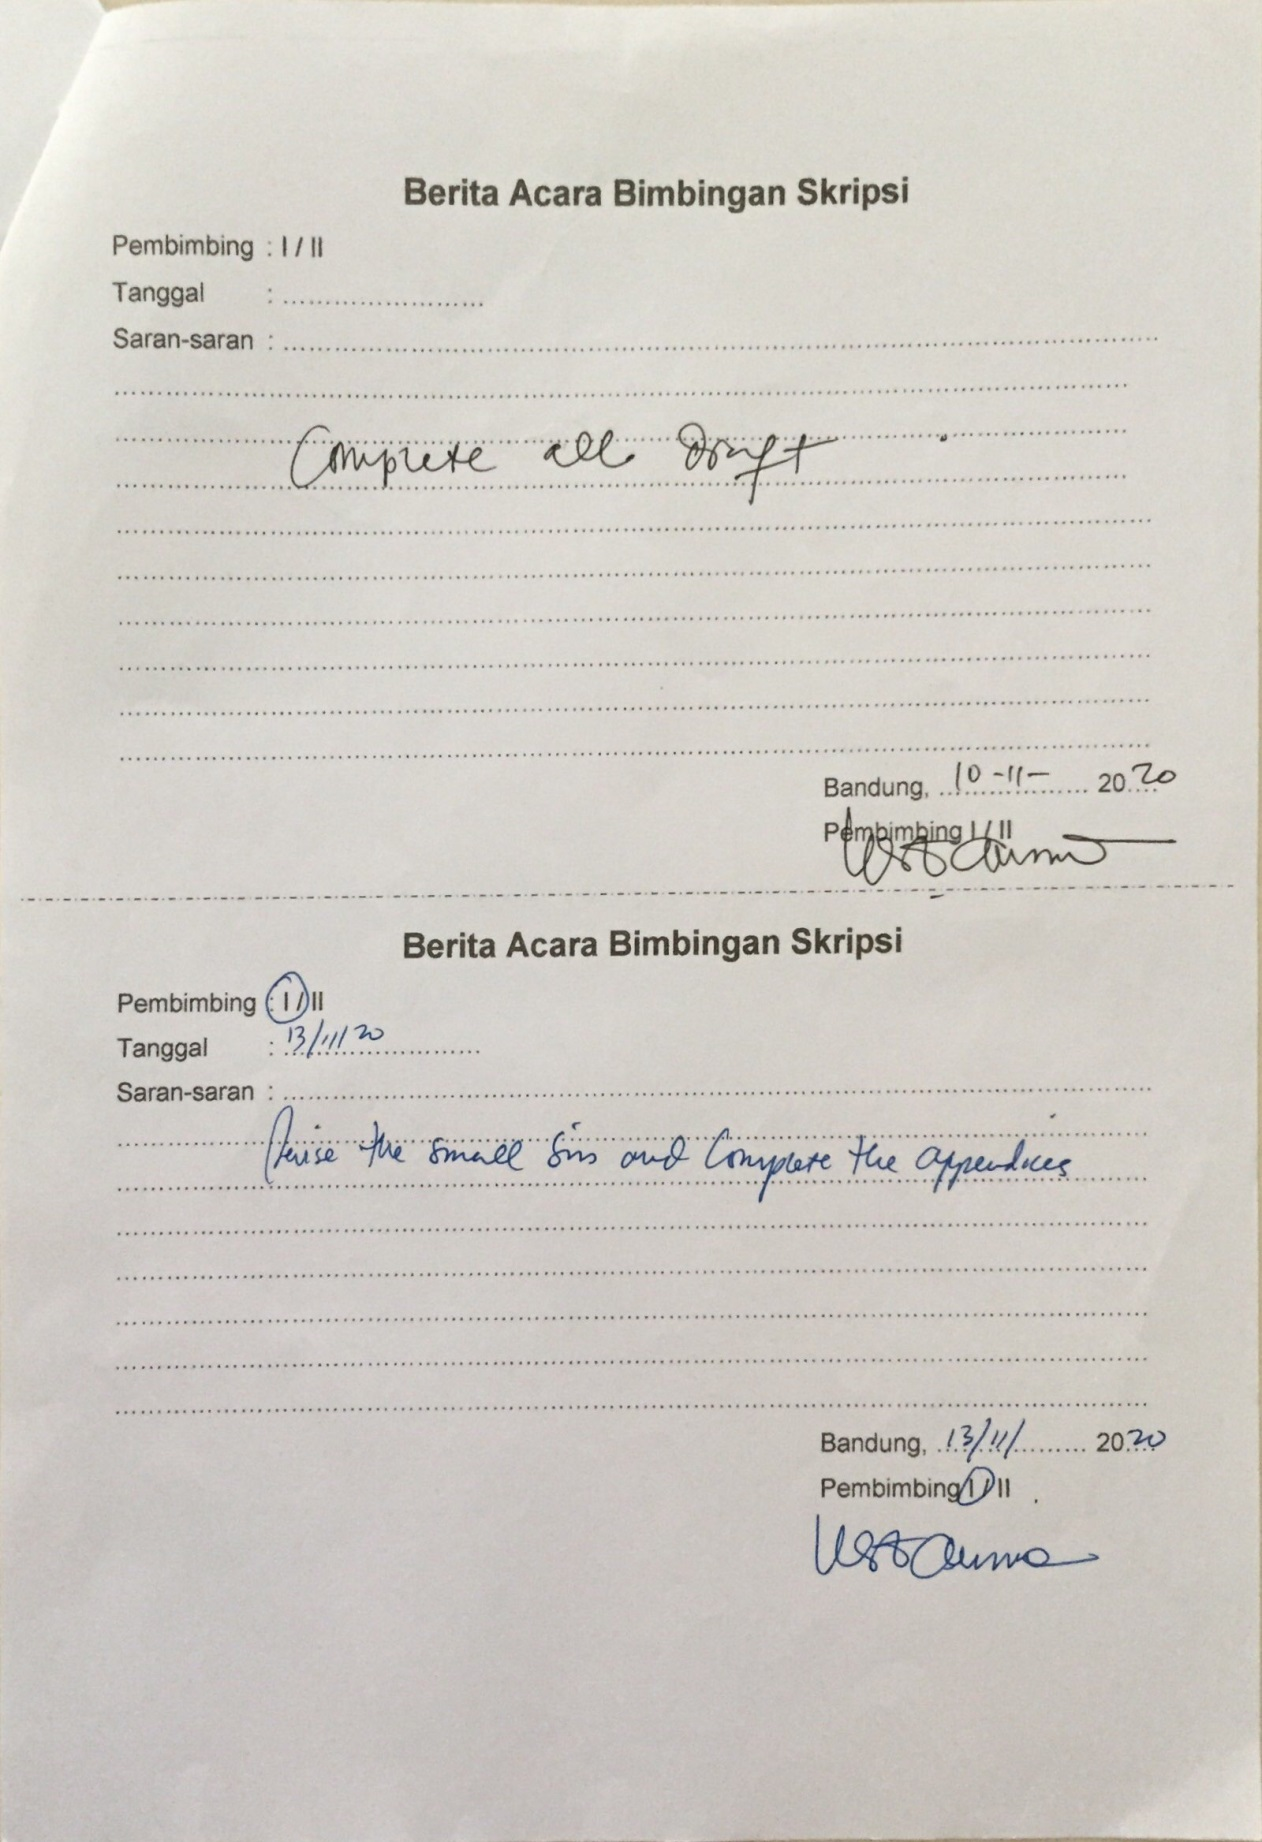 Berita Acara Bimbingan Skripsi
Pembimbing : I / II
Tanggal : ........................
Saran-saran : ........................
Complete all Draft
Bandung, 10-11- 2020
Pembimbing I / II
Berita Acara Bimbingan Skripsi
Pembimbing : I / II
Tanggal : 13/11/20
Saran-saran : ........................
the small sins and Complete the appendices
Bandung, 13/11/ 2020
Pembimbing I / II